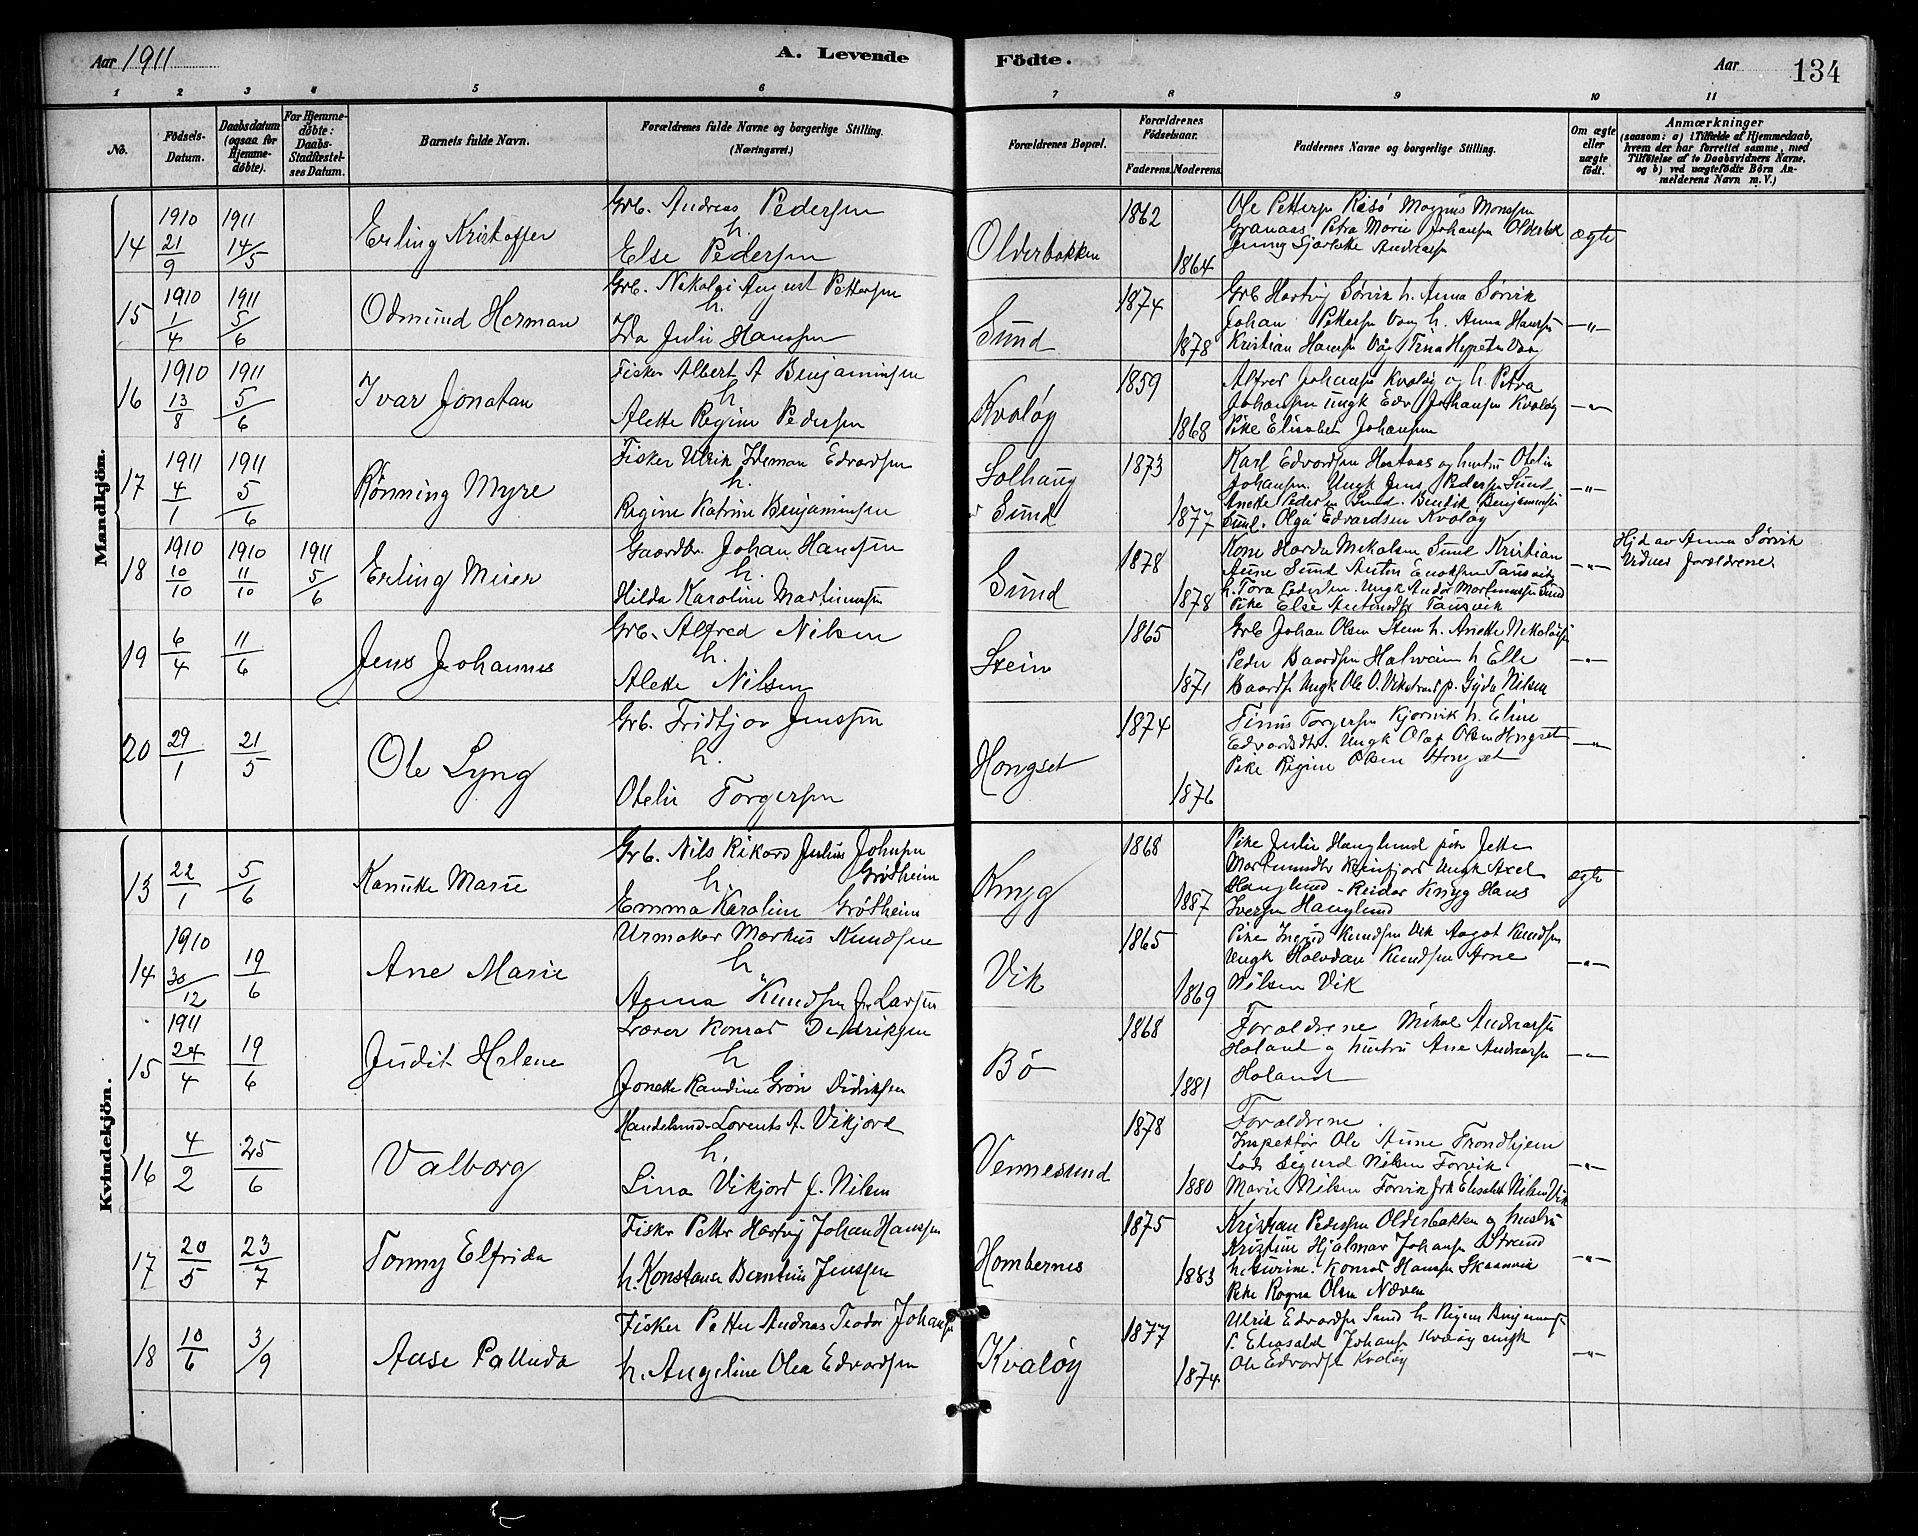 Aar 1911
A. Levende
Födte.
Aar
134
1 2 3 4 5 6 7 8 9 10 11
No.
Födsels-Datum.
Daabsdatum (ogsaa for Hjemme-döbte).
For Hjemme-döbte: Daabs-Stadfæstel-ses Datum.
Barnets fulde Navn.
Forældrenes fulde Navne og borgerlige Stilling.
(Næringsvei.)
Forældrenes Bopæl.
Forældrenes Födselsaar.
Faderens. Moderens.
Faddernes Navne og borgerlige Stilling.
Om ægte eller uægte födt.
Anmærkninger
(saasom: a) i Tilfælde af Hjemmedaab,
hvem der har forrettet samme, med
Tilföielse af to Daabsvidners Navne,
og b) ved uægtefödte Börn An-
melderens Navn m. V.)
Mandkjön.
14 1910 21/9 1911 14/5 Erling Kristoffer
Grb. Andreas Pedersen
h.
Else Pedersen
Olderbakken 1862 1864
Ole Pettersen Risö Magnus Monssen
Granaas Petra Marie Johansen Olderbk.
Andreasen
ægte
15 1910 1/4 1911 5/6 Odmund Herman
Grb. Nikolai August Pettersen
h.
Ida Julie Hanssen
Sund 1874 1878
Grb Hartvig Sørvik h. Anna Sørvik
Johan Pettersen Vaag h. Anna Hanssen
Kristian Hansen
-"-
16 1910 13/8 1911 5/6 Ivar Jonatan
Fisker Albert A Benjaminsen
h
Alette Regine Pedersen
Kvaløy 1859 1868
Alfred Johansen Kvaløy og h. Petra
Johansen ungk Edv Johansen Kvaløy
Pike Elisabet Johansen
-"-
17 1911 4/1 1911 5/6 Rønning Myre
Fisker Ulrik Ideman Edvardsen
h.
Regine Katrine Benjaminsen
Solhaug
Sund 1873 1877
Karl Edvardsen Hestaas og hustru Otelie
Johansen. Ungk Jens Pedersen Sund
Anette Pedersen Sund. Bendik Benjaminsen
Sund. Olga Edvardsen Kvaløy
-"-
18 1910 10/10 1910 11/10 1911 5/6 Erling Meier
Gaardbr. Johan Hanssen
h.
Hilda Karoline Martinussen
Sund 1878 1878
Kone Harda Mikalsen Sund Kristian
Aune Sund Anton Enoksen Tausvik
h. Tora Pedersen. Ungk Andor Martinussen Sund
Pike Else Tausvik
-"-
Hjd av Anna Sørvik
Vidner forældrene
19 6/4 11/6 Jens Johannes
Grb. Alfred Nilsen
h.
Alette Nilsen
Stein 1865 1871
Grb Johan Olsen Stein h. Anette Nikolaisen
Peder Baardsen h Elle
Baards Ungk Ole O. Vikstrand p. Gyda Nilsen
-"-
20 29/1 21/5 Ole Lyng
Grb. Fridtjov Jenssen
h.
Otelie Torgersen
Hongset 1874 1876
Tinus Torgersen Kjørvik h. Eline
Edvardsdtr. Ungk Olaf Olsen Hongset
Pike Regine Olsen Hongset
-"-
Kvindekjön.
13 22/1 5/6 Marie
Grb. Nils Rikard Julius Johnsen
Grøtheim
h.
Emma Karoline Grøtheim
Knyg 1868 1887
Pike Julie Hauglund pike Jette
Reinfjord Ungk Axel
Hauglund - Reidar Knyg Hans
Iversen Hauglund
ægte
14 1910 30/12 19/6 Ane Marie
Urmaker Markus Knudsen
h.
Anna Knudsen f. Larsen
Vik 1865 1869
Pike Ingrid Knudsen Vik Aagot Knudsen
Ungk Halvdan Knudsen Arne
Nilsen Vik
-"-
15 1911 24/4 19/6 Judit Helene
Lærer Konrad Didriksen
h
Jonette Randine Grøn Didriksen
Bø 1868 1881
Forældrene Mikal Andreassen
Holand og hustru Ane Andreassen
Holand
-"-
16 4/2 25/6 Valborg
Handelsmd. Lorents A. Vikjord
h.
Lina Vikjord f. Nilsen
Vennesund 1878 1880
Forældrene.
Inspektør Ole Aune Trondhjem
Lods Sigurd Nilsen Forvik
Marie Nilsen Forvik frk Elisabet Nilsen Vik
-"-
17 20/5 23/7 Tonny Elfrida
Fisker Petter Hartvig Johan Hanssen
h. Konstanse Berntine Jenssen
Hombernes 1875 1883
Kristian Pedersen Olderbakken og hustru
Kristine Hjalmar Johansen Strand
h. Gurine. Konrad Hansen
Pike Ragna Olsen Næven
-"-
18 10/6 3/9 Aase Pallnda
Fisker Petter Andreas Teodor Johansen
h. Angeline Olea Edvardsen
Kvaløy 1877 1874
Ulrik Edvardsen Sund h Regine Benjaminsen
P. Elisabet Johansen Kvaløy ungk
Ole Edvardsen Kvaløy
-"-